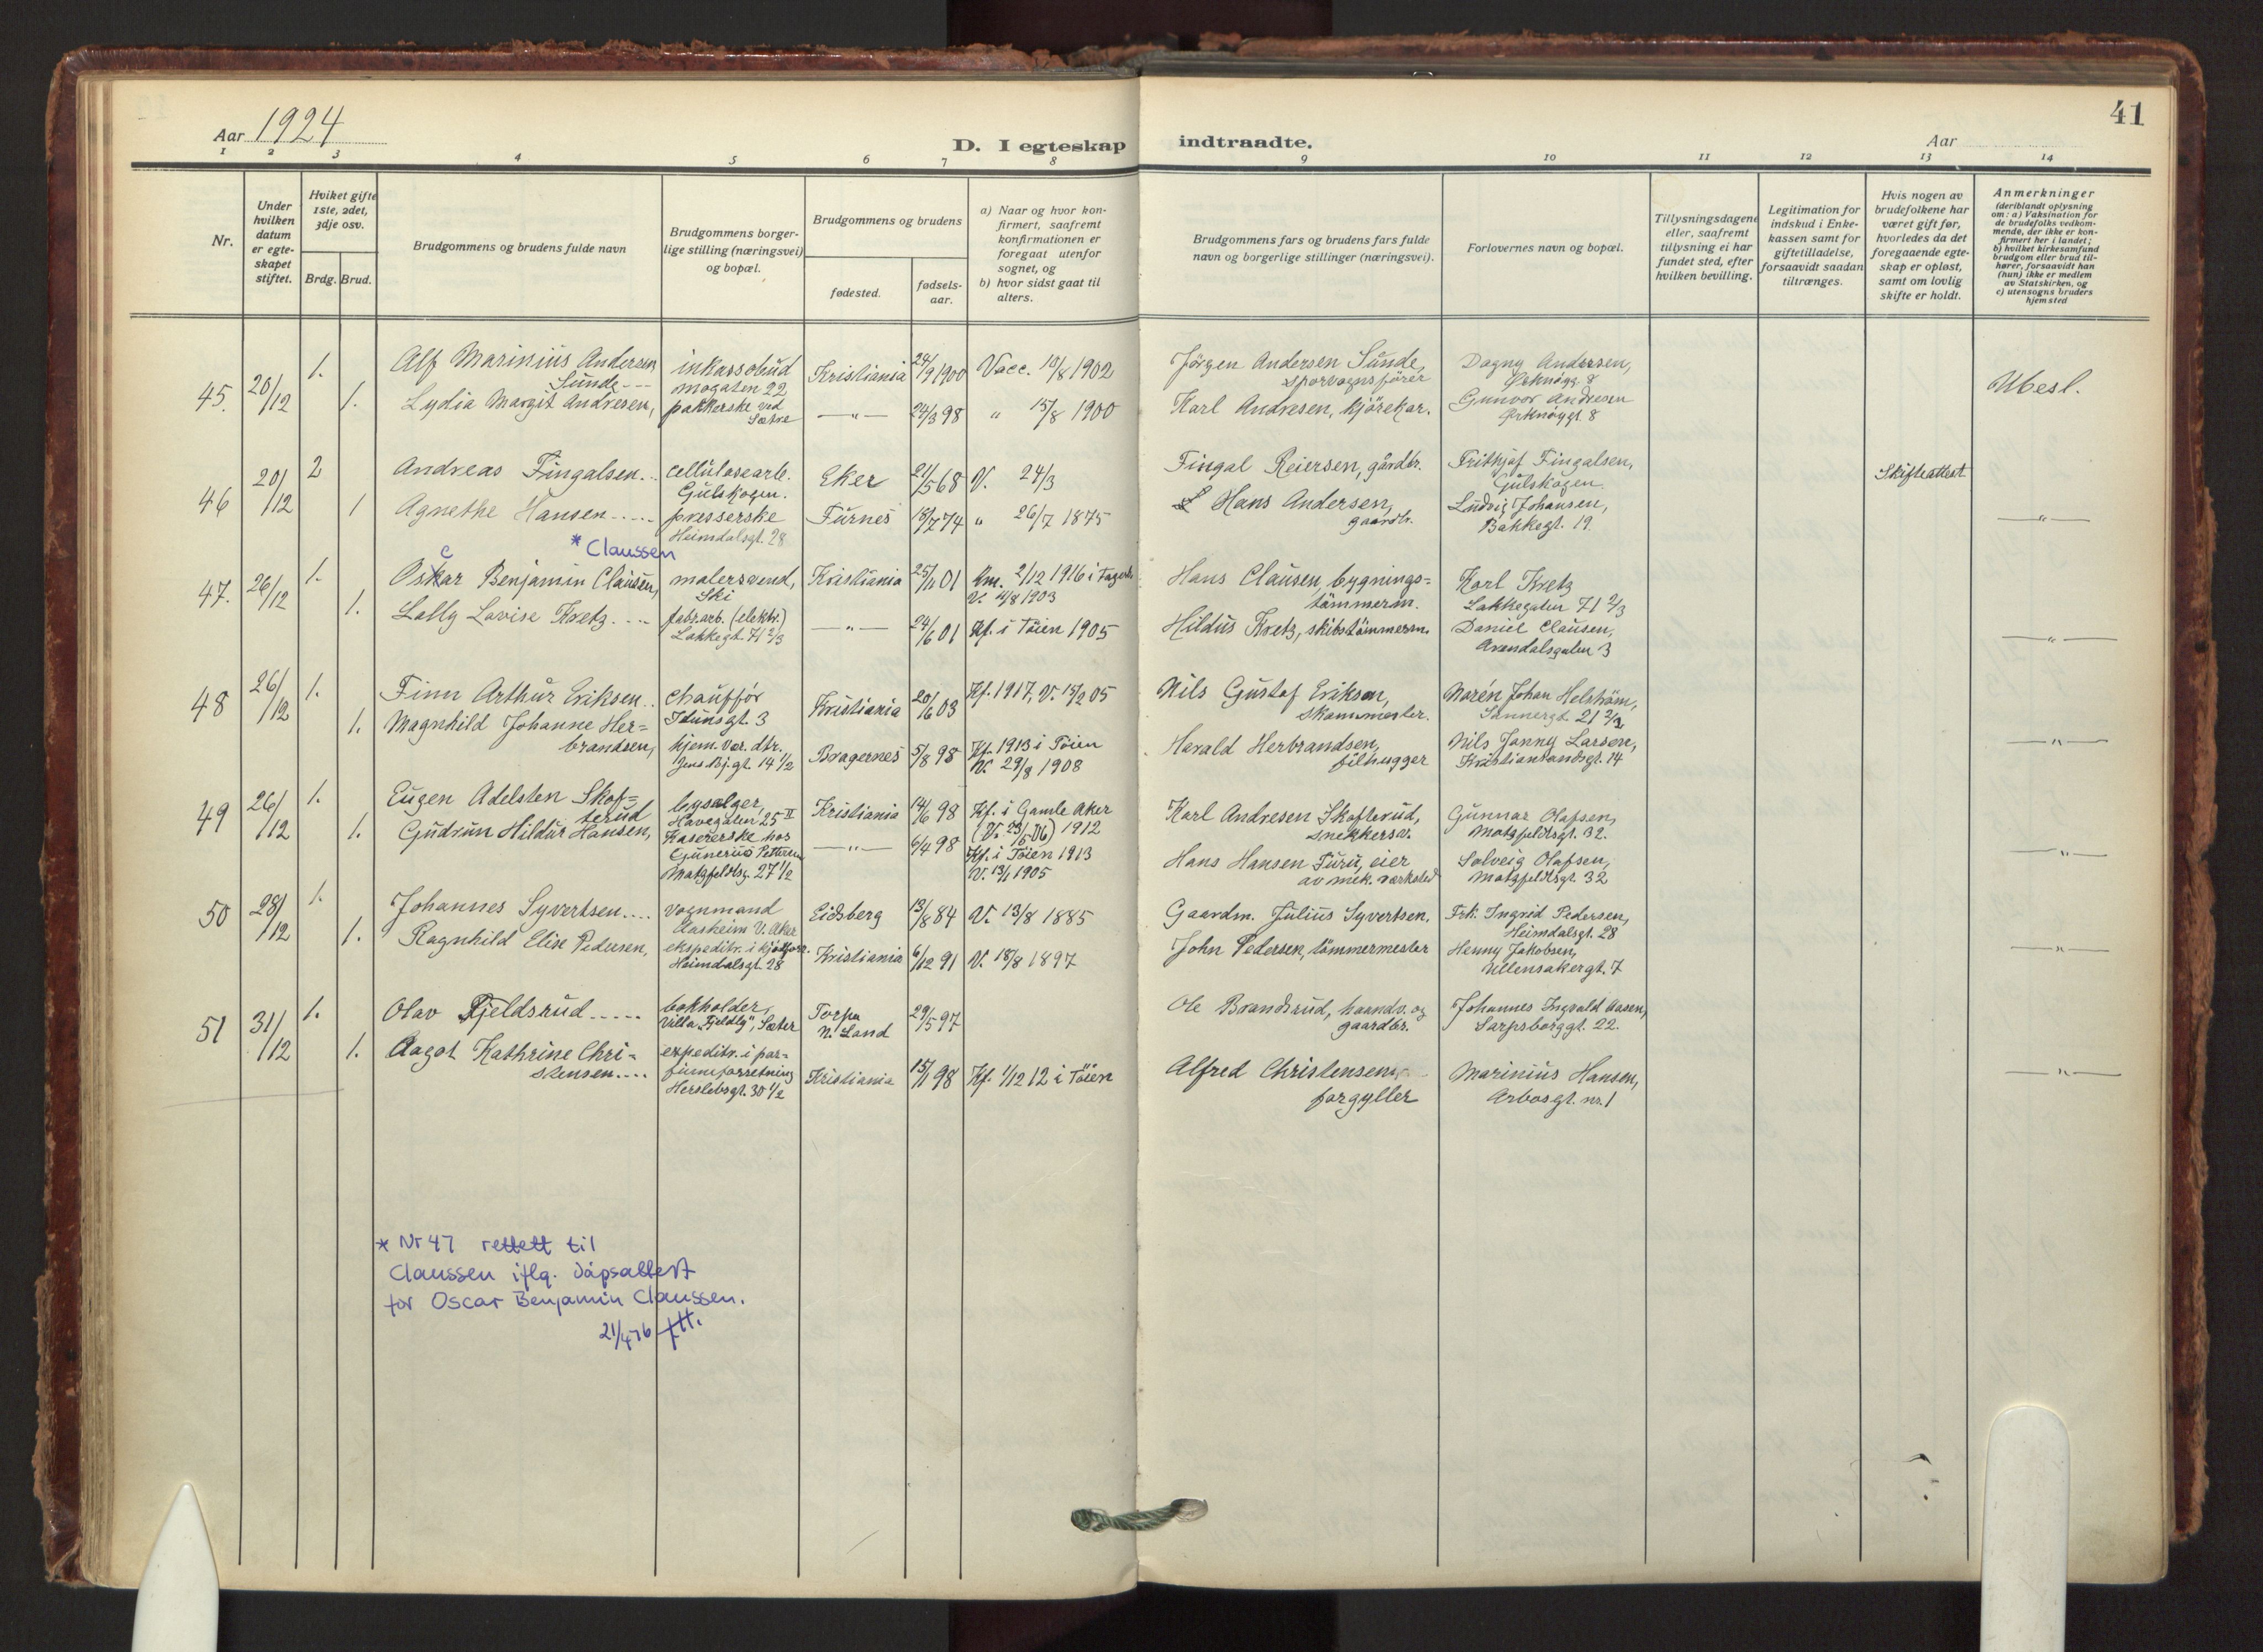 41
Aar 1924
D. I egteskap indtraadte.
Aar
1 2 3 4 5 6 7 8 9 10 11 12 13 14
Nr.
Under hvilken datum er egteskapet stiftet.
Hviket gifte 1ste, 2det, 3dje osv.
Brdg. Brud.
Brudgommens og brudens fulde navn
Brudgommens borgerlige stilling (næringsvei) og bopæl.
Brudgommens og brudens
fødested.
fødselsaar.
a) Naar og hvor konfirmert, saafremt konfirmationen er foregaat utenfor sognet, og
b) hvor sidst gaat til alters.
Brudgommens fars og brudens fars fulde navn og borgerlige stillinger (næringsvei).
Forlovernes navn og bopæl.
Tillysningsdagene eller, saafremt tillysning ei har fundet sted, efter hvilken bevilling.
Legitimation for indskud i Enkekassen samt for giftetilladelse, forsaavidt saadan tiltrænges.
Hvis nogen av brudefolkene har været gift før, hvorledes da det foregaaende egteskap er opløst, samt om lovlig skifte er holdt.
Anmerkninger
(deriblandt oplysning om: a) Vaksination for de brudefolks vedkommende, der ikke er konfirmert her i landet;
b) hvilket kirkesamfund brudgom eller brud tilhører, forsaavidt han (hun) ikke er medlem av Statskirken, og
c) utensogns bruders hjemsted
45. 20/12 1. Alf Marinius Andersen Sunde --- inkassobud Kristiania 24/9 1900 Vacc. 10/8 1902 Jörgen Andersen Sunde, sporvognsfører Dagny Andersen, 8 Ubesl.
1. Lydia Margit Andresen, pakkerske ved Sætre —"— 24/3 98 " 15/8 1900 Karl Andresen, kjörekar. Gunvor Andresen 8
46 20/12 2 Andreas Fingalsen.. cellulosearb. Gulskogen. Eker 21/5 68 V. 24/3 Fingal Reiersen, gårdbr. Frithjof Fingalsen, Gulskogen. Skifteattest
1 Agnethe Hansen ..... presserske Heimdalsgt. 28 Furnes 18/7 74 " 26/7 1875 Hans Andersen, gaardbr. Ludvig Johansen, Bakkegt. 19. —"—
* Claussen
c
47. 26/12 1. Oskar Benjamin Clausen, malersvend, Ski Kristiania 25/11 01 2/12 1916 i V. 4/8 1903 Hans Clausen, bygnings= tömmerm. Karl Kretz Lakkegaten 71 2/3
1. Lally Lovise Kretz. ... fabr.arb. (elektr.) Lakkegt. 71 2/3 —"— 24/6 01 Kf. i Töien 1905 Hildus Kretz, skibstömmerm. Daniel Clausen, Arendalsgaten 3 —"—
48 26/12 1. Finn Arthur Eriksen.. chauffør Idunsgt. 3 Kristiania 20/6 03 Kf. 1917, V. 15/2 05 Nils Gustaf Erikson, Johan Helström, Sannergt. 21
1. Magnhild Johanne Her= brandsen, hjem.vær. dtr. Jens Bj.gt. 14 1/2 Bragernes 5/8 98 Kf. 1913 i Töien V. 29/8 1908 Harald Herbrandsen, filhugger Nils Janny Larsen, Kristiansandsgt. 14 —"—
49 26/12 1. Eugen Adelsten Skof= terud bysælger, Havegaten 25 II Kristiania 14/6 98 Kf. i Gamle Aker (V. 23/5 06) 1912 Karl Andresen Skofterud, snekkersv. Gunnar Olafsen, Motzfeldtsgt. 32.
1. Gudrun Hildur Hansen, Kasererske hos Gunerius Pettersen Motzfeldtsg. 27 1/2 —"— 6/4 98 Kf. i Töien 1913 V. 13/1 1905 Hans Hansen Furu, eier av mek. værksted Solveig Olafsen, Motzfeldtsgt. 32 —"—
50 28/12 1. Johannes Syvertsen.... vognmand Aasheim V. Aker Eidsberg 13/8 84 V. 13/8 1885 Gaardm. Julius Syvertsen. Frk. Ingrid Pedersen, Heimdalsgt. 28
1. Ragnhild Elise Pedersen, ekspeditr. i kjøtforr. Heimdalsgt. 28 Kristiania 6/12 91 V. 18/8 1897 John Pedersen, tömmermester Henny Jakobsen, Ullensakergt. 7 —"—
51 31/12 1. Olav Fjeldsrud..... bokholder, Villa „Fjeldly", Sæter Torpa N. Land 29/5 97 Ole Brandsrud, haandv. og gaardbr. Johannes Ingvald Aasen, Sarpsborggt. 22.
1. Aagot Kathrine Chri= stensen.... expeditr. i par= fumeforretning Herslebsgt. 30 1/2 Kristiania 15/1 98 Kf. 1/12 12 i Töien Alfred Christensen, forgyller Marinius Hansen, Arbosgt. nr. 1 —"—
* Nr 47 rettett til
Claussen iflg. dåpsattest
for Oscar Benjamin Claussen.
21/4 76